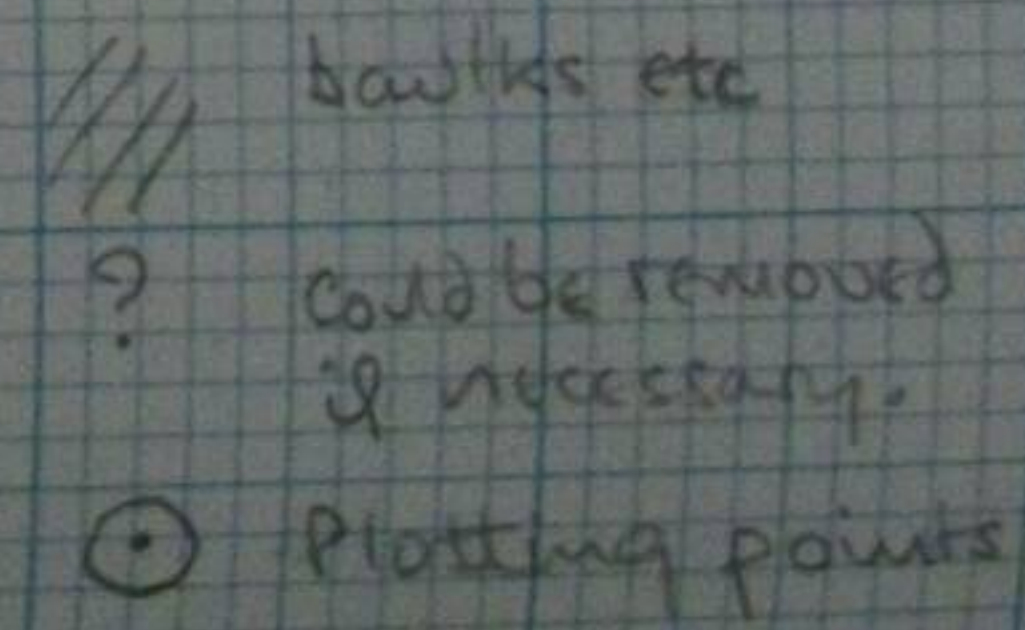 bawlks etc
? could be removed
if necessary.
Plotting points